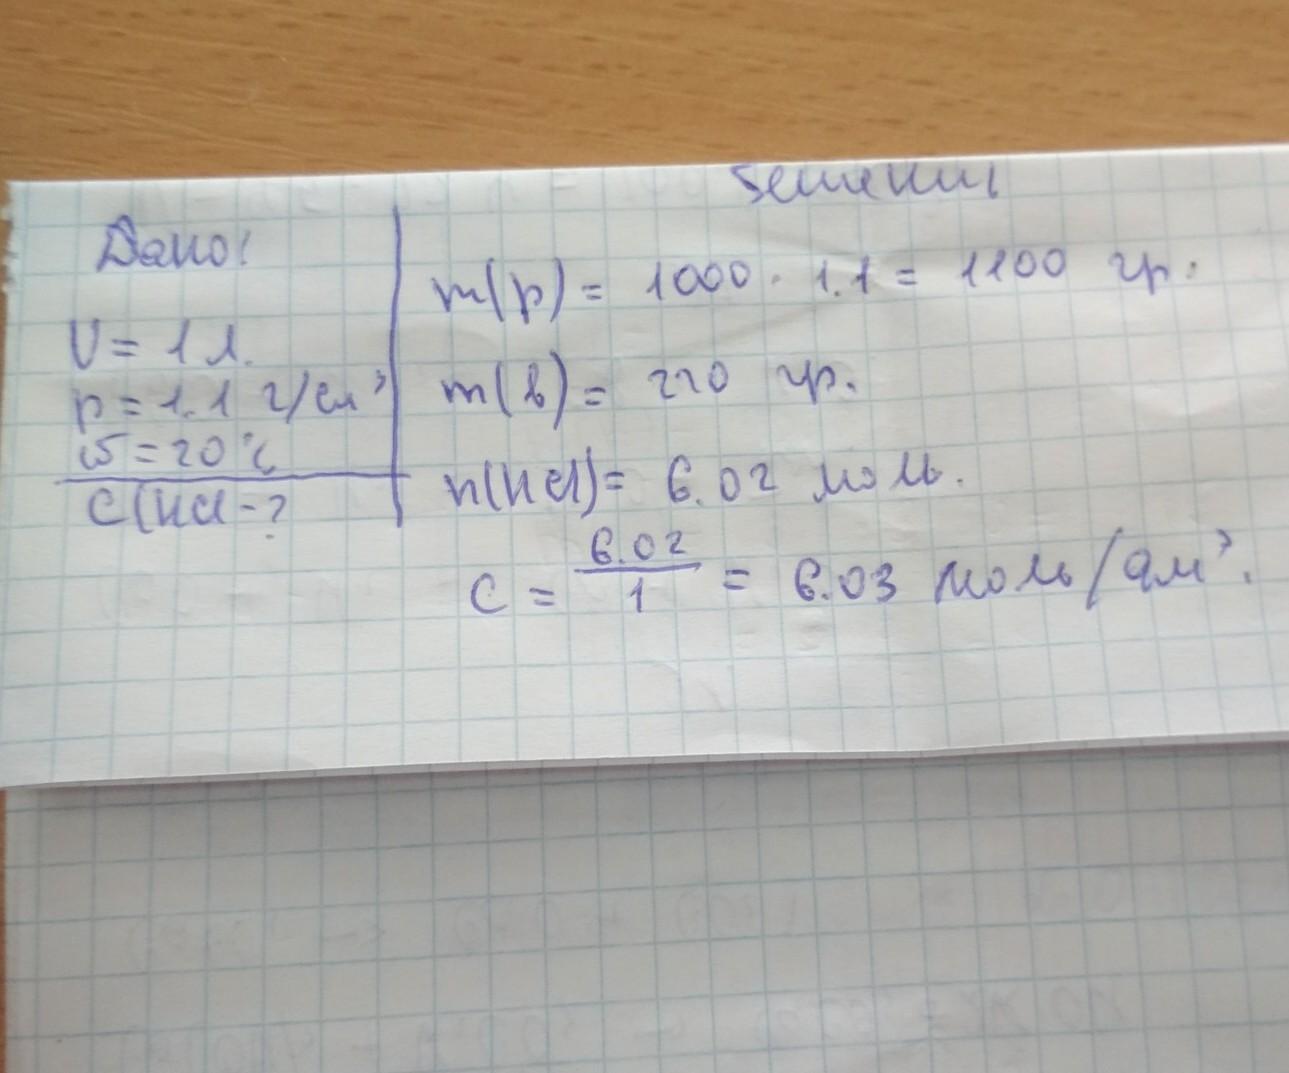 Решение
Дано:
V = 1 л.
p = 1.1 г/см³
w = 20%
C(HCl - ?
m(p) = 1000 · 1.1 = 1100 гр.
m(в) = 220 гр.
n(HCl) = 6.02 моль.
C = 6.02 / 1 = 6.03 моль/дм³.